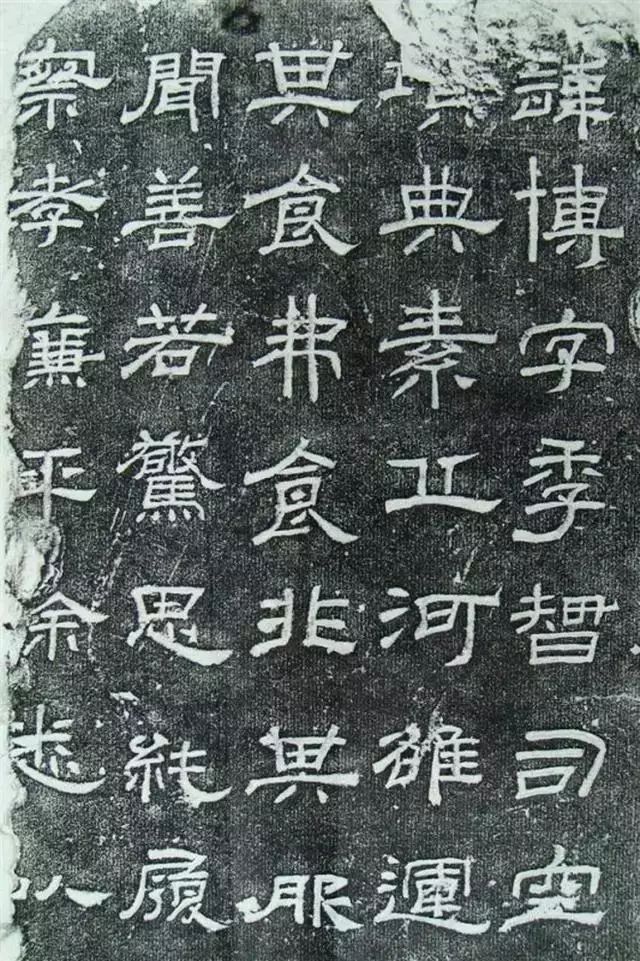 諱博字季智司空
墳典素丘河雒運
其食弗食非其服
聞善若驚思純履
察孝廉